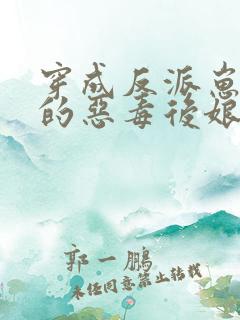 穿成反派崽
的惡毒後娘
郭一鵬
未经同意禁止转载